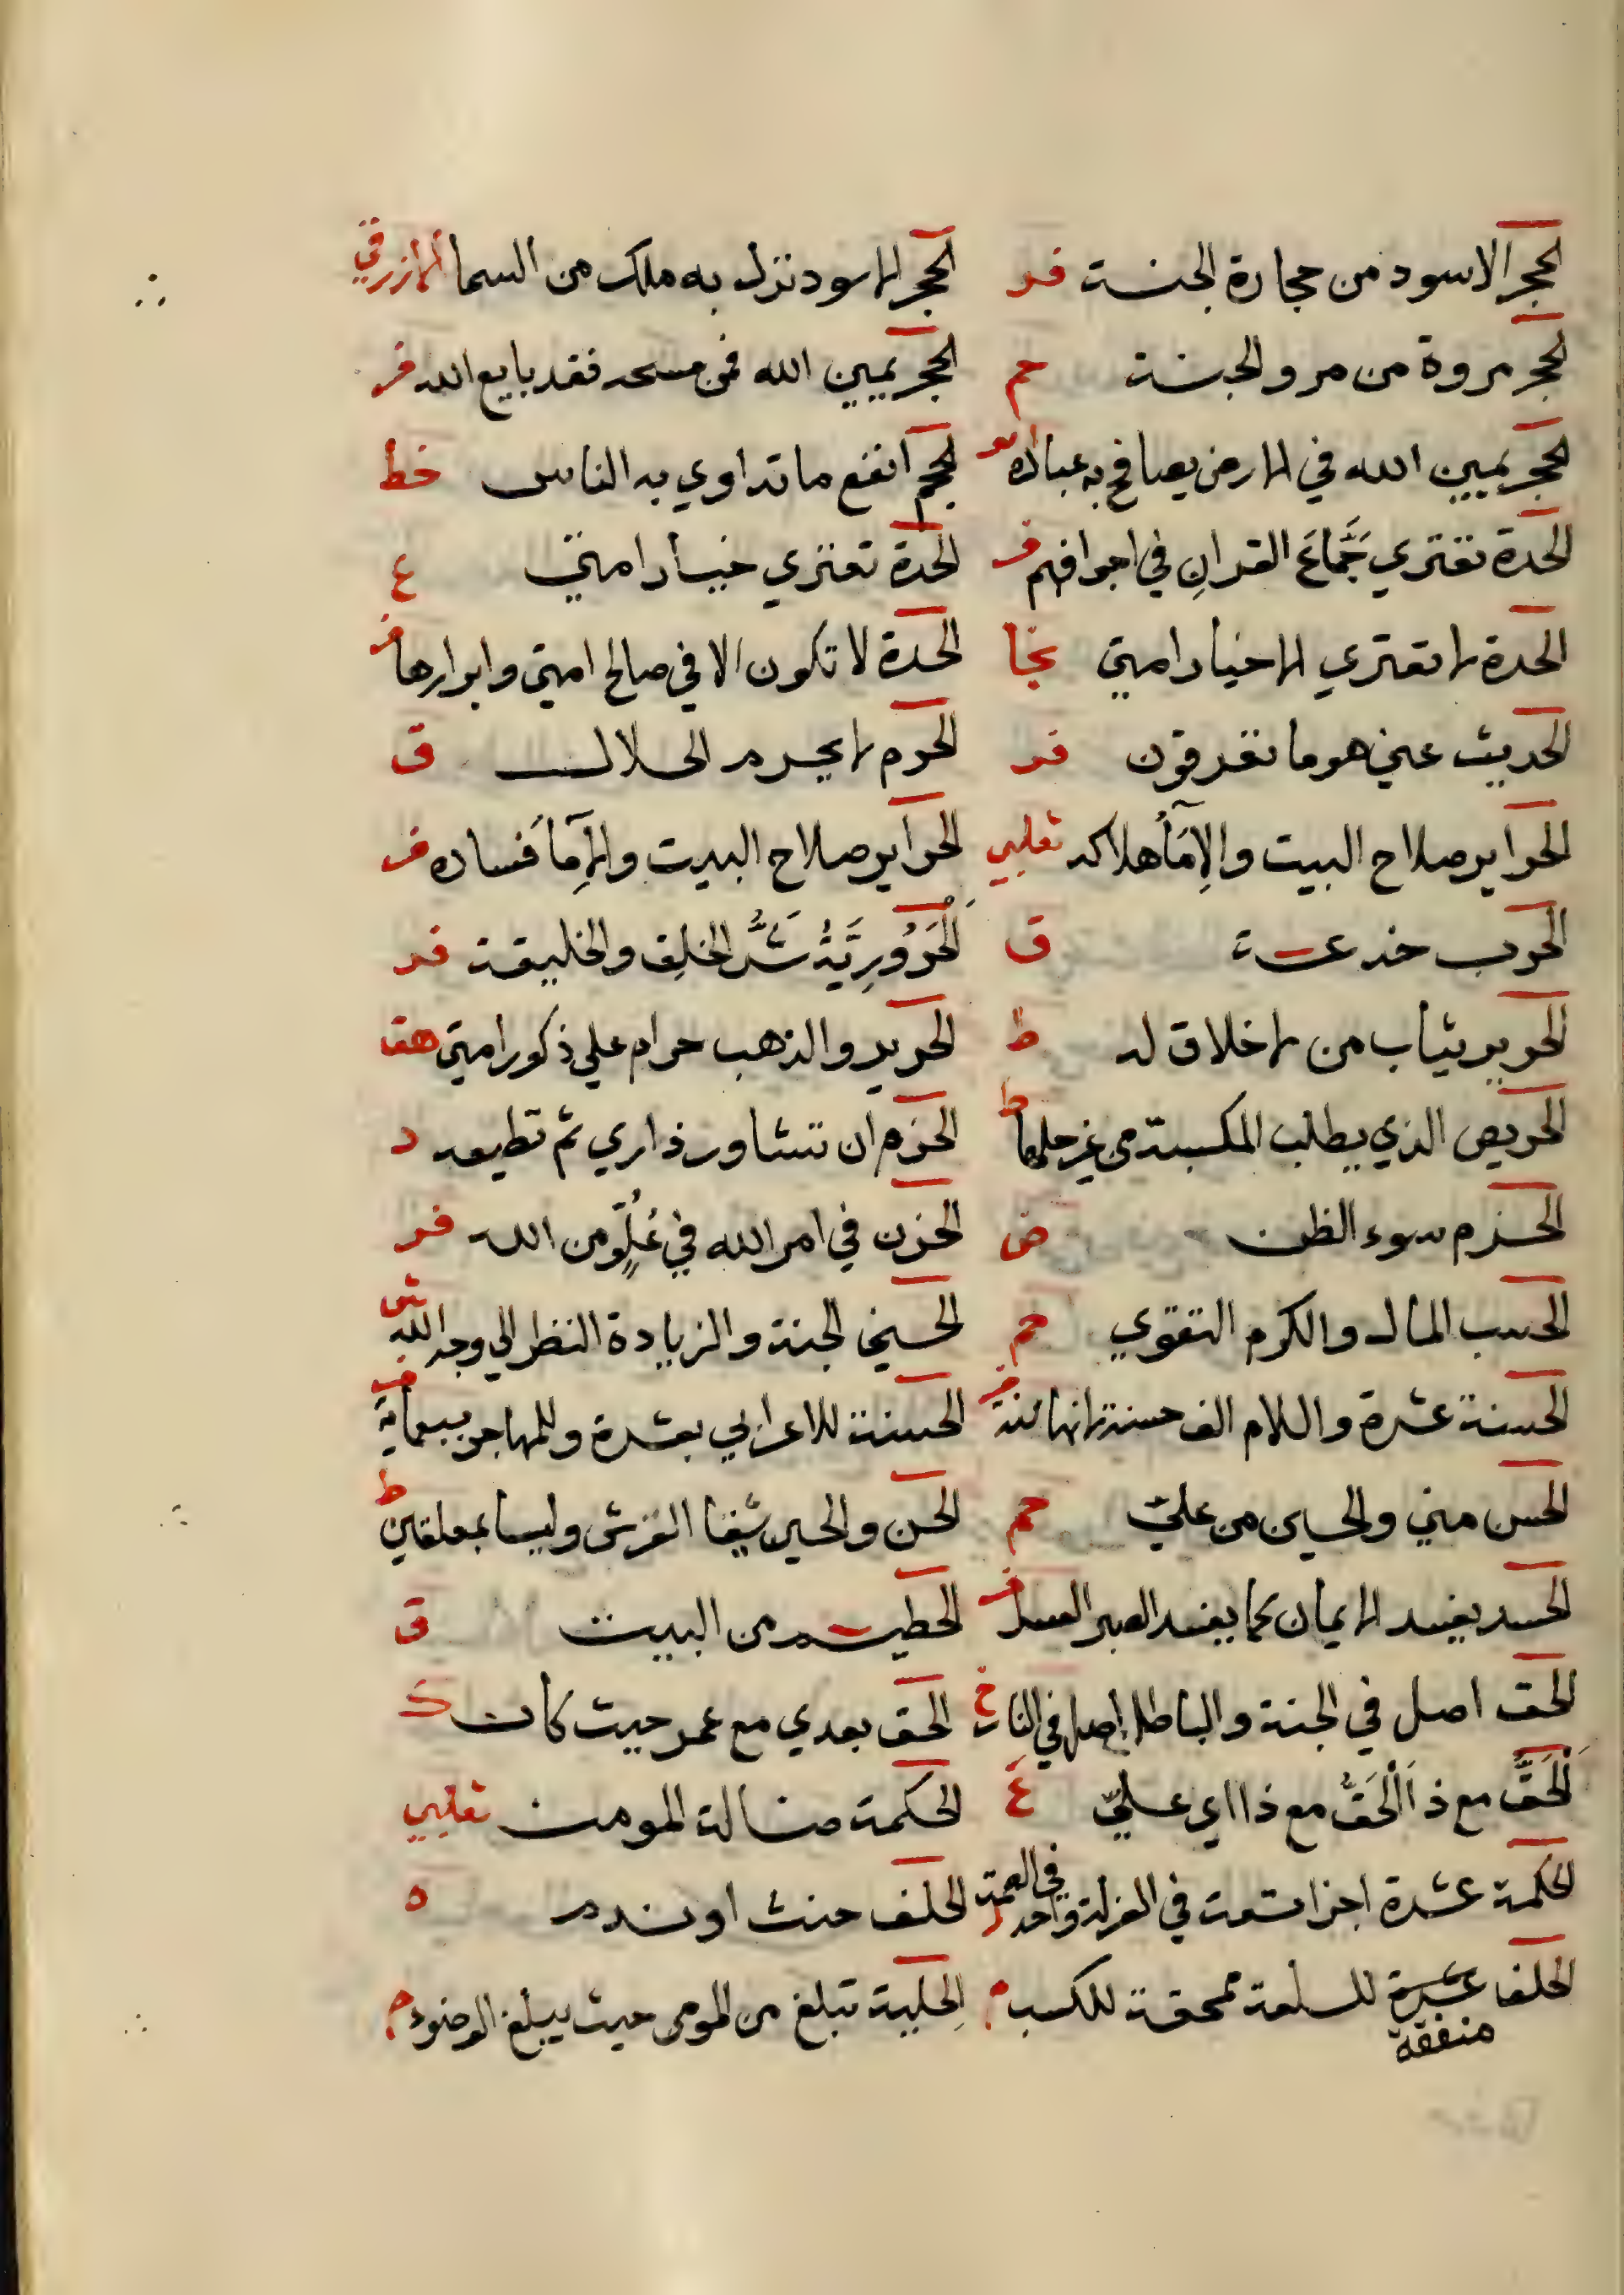 الحجر الاسود من حجارة الجنة فر الحجر الاسود نزل به ملك من السما الازرقي
الحجر مروة من مرو الجنة حم الحجر يمين الله فمن مسحه فقد بايع الله فر
الحجر يمين الله في الارض يصافح به عباده الحجم انفع ما تداوي به الناس خط
الحدة تعتري جَمَّاعَ القرانِ في اجوافهم ف الحدة تعتري خيار امتي ع
الحدة لا تعتري الا خيار امتي نجا الحدة لا تكون الا في صالح امتي وابرارها فر
الحديث عني هو ما تعرفون فر الحرم لا يحرم الحلال ق
الحراير صلاح البيت والاِمَآ هلاكه ثعلبي الحراير صلاح البيت والاِمَآ فساده ف
الحرب خدعة ق اَلْحَرُورِيَّةُ شَرُّ الخلقِ والخليقة فر
الحرير ثياب من لا خلاق له ط الحرير والذهب حرام علي ذكور امتي هق
الحريص الذي يطلب المكسبة من غير حلها ط الحزم ان تشاور ذا راي ثم تطيعه د
الحزم سوء الظن ض الحزن في امر الله في عُلُوٍّ من الله فر
الحسب المال والكرم التقوي حم الحسني الجنة والزيادة النظر الي وجه الله ش
الحسنة عشرة والسلام الف حسنة فر الحسنة للاعرابي بعشرة وللمهاجر بسبعماية ف
الحسن مني والحسين من علي حم الحسن والحسين شنفا العرش وليسا بمعلقين ط
الحسد يفسد الايمان كما يفسد الصبر العسل فر الحطيم من البيت ق
الحق اصل في الجنة والباطل اصل في النار خ الحق بعدي مع عمر حيث كان ك
اَلْحَقُّ مع ذا اَلْحَقُّ مع ذا اي علي ع الحكمة ضالة المومن ثعلبي
الحكمة عشرة اجزا تسعة في العزلة وواحد في الصمت الحلف حنث او ندم ه
الحلف منفقة للسلعة ممحقة للكسب م الحلية تبلغ من المومن حيث يبلغ الوضوء م
منفقة